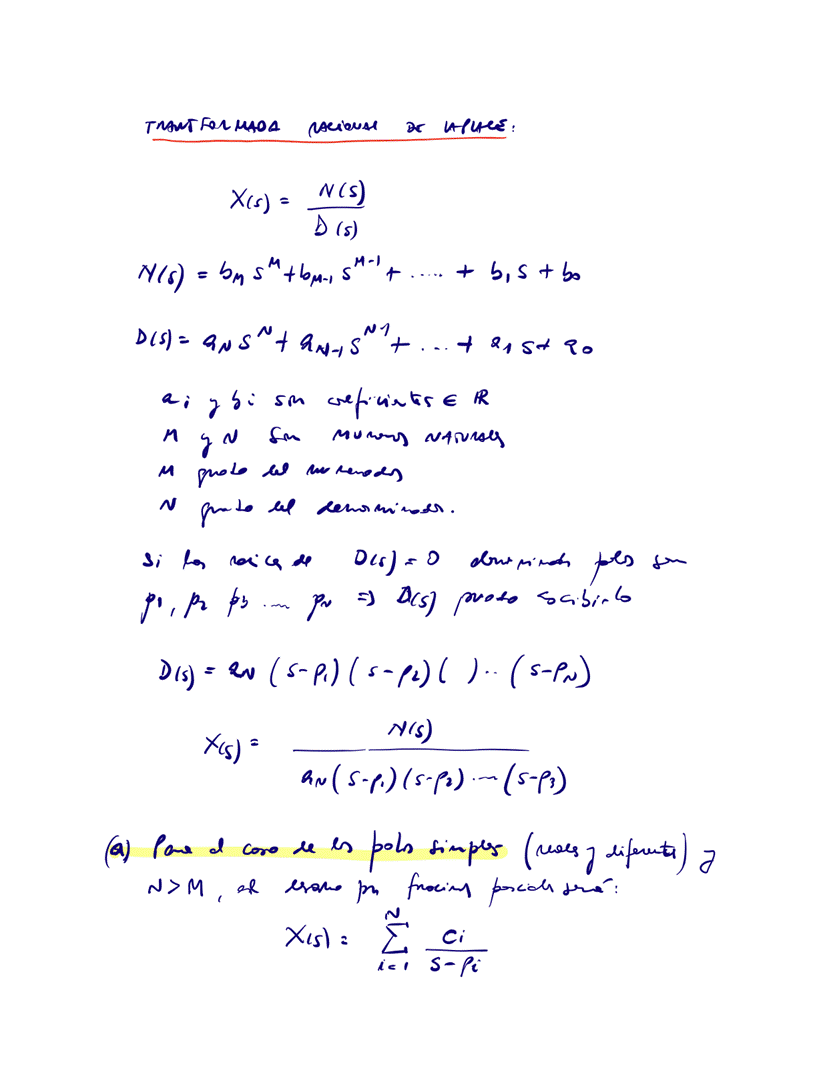 TRANSFORMADA RACIONAL DE LAPLACE:
X(s) = N(s) / D(s)
N(s) = b_M s^M + b_{M-1} s^{M-1} + ..... + b_1 s + b_0
D(s) = a_N s^N + a_{N-1} s^{N-1} + ... + a_1 s + a_0
a_i y b_i son coeficientes ∈ ℝ
M y N son NUMEROS NATURALES
M grado del numerador
N grado del denominador.
Si las raices de D(s) = 0 denominadas polos son
p_1, p_2 p_3 .... p_N => D(s) puedo escribirlo
D(s) = a_N (s-p_1)(s-p_2)( ) .. (s-p_N)
X(s) = N(s) / a_N (s-p_1)(s-p_2) .... (s-p_3)
(a) Para el caso de los polos simples (reales y diferentes) y
N>M, el por fracciones parciales será:
X(s) = ∑_{i=1}^{N} c_i / s-p_i